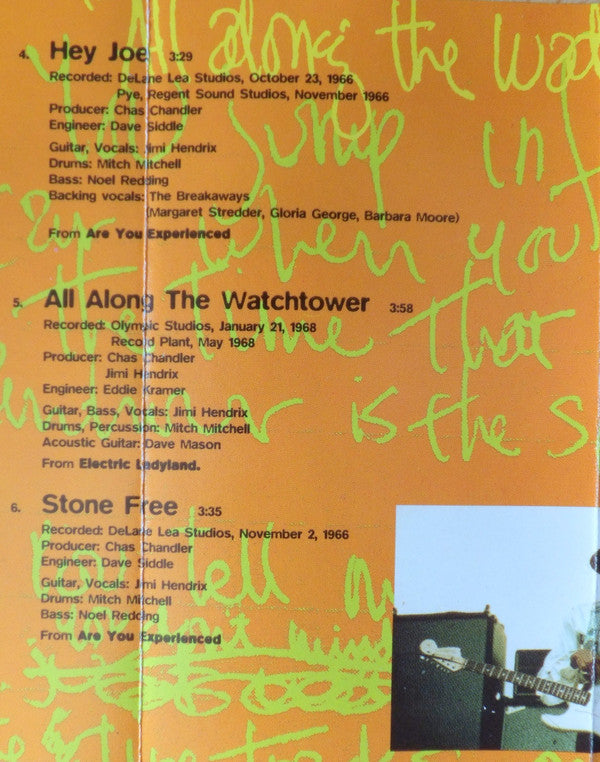 4. Hey Joe 3:29
Recorded: DeLane Lea Studios, October 23, 1966
Pye, Regent Sound Studios, November 1966
Producer: Chas Chandler
Engineer: Dave Siddle
Guitar, Vocals: Jimi Hendrix
Drums: Mitch Mitchell
Bass: Noel Redding
Backing vocals: The Breakaways
(Margaret Stredder, Gloria George, Barbara Moore)
From Are You Experienced
5. All Along The Watchtower 3:58
Recorded: Olympic Studios, January 21, 1968
Record Plant, May 1968
Producer: Chas Chandler
Jimi Hendrix
Engineer: Eddie Kramer
Guitar, Bass, Vocals: Jimi Hendrix
Drums, Percussion: Mitch Mitchell
Acoustic Guitar: Dave Mason
From Electric Ladyland.
6. Stone Free 3:35
Recorded: DeLane Lea Studios, November 2, 1966
Producer: Chas Chandler
Engineer: Dave Siddle
Guitar, Vocals: Jimi Hendrix
Drums: Mitch Mitchell
Bass: Noel Redding
From Are You Experienced
All along the
in
when you
the time that
is the S
tell